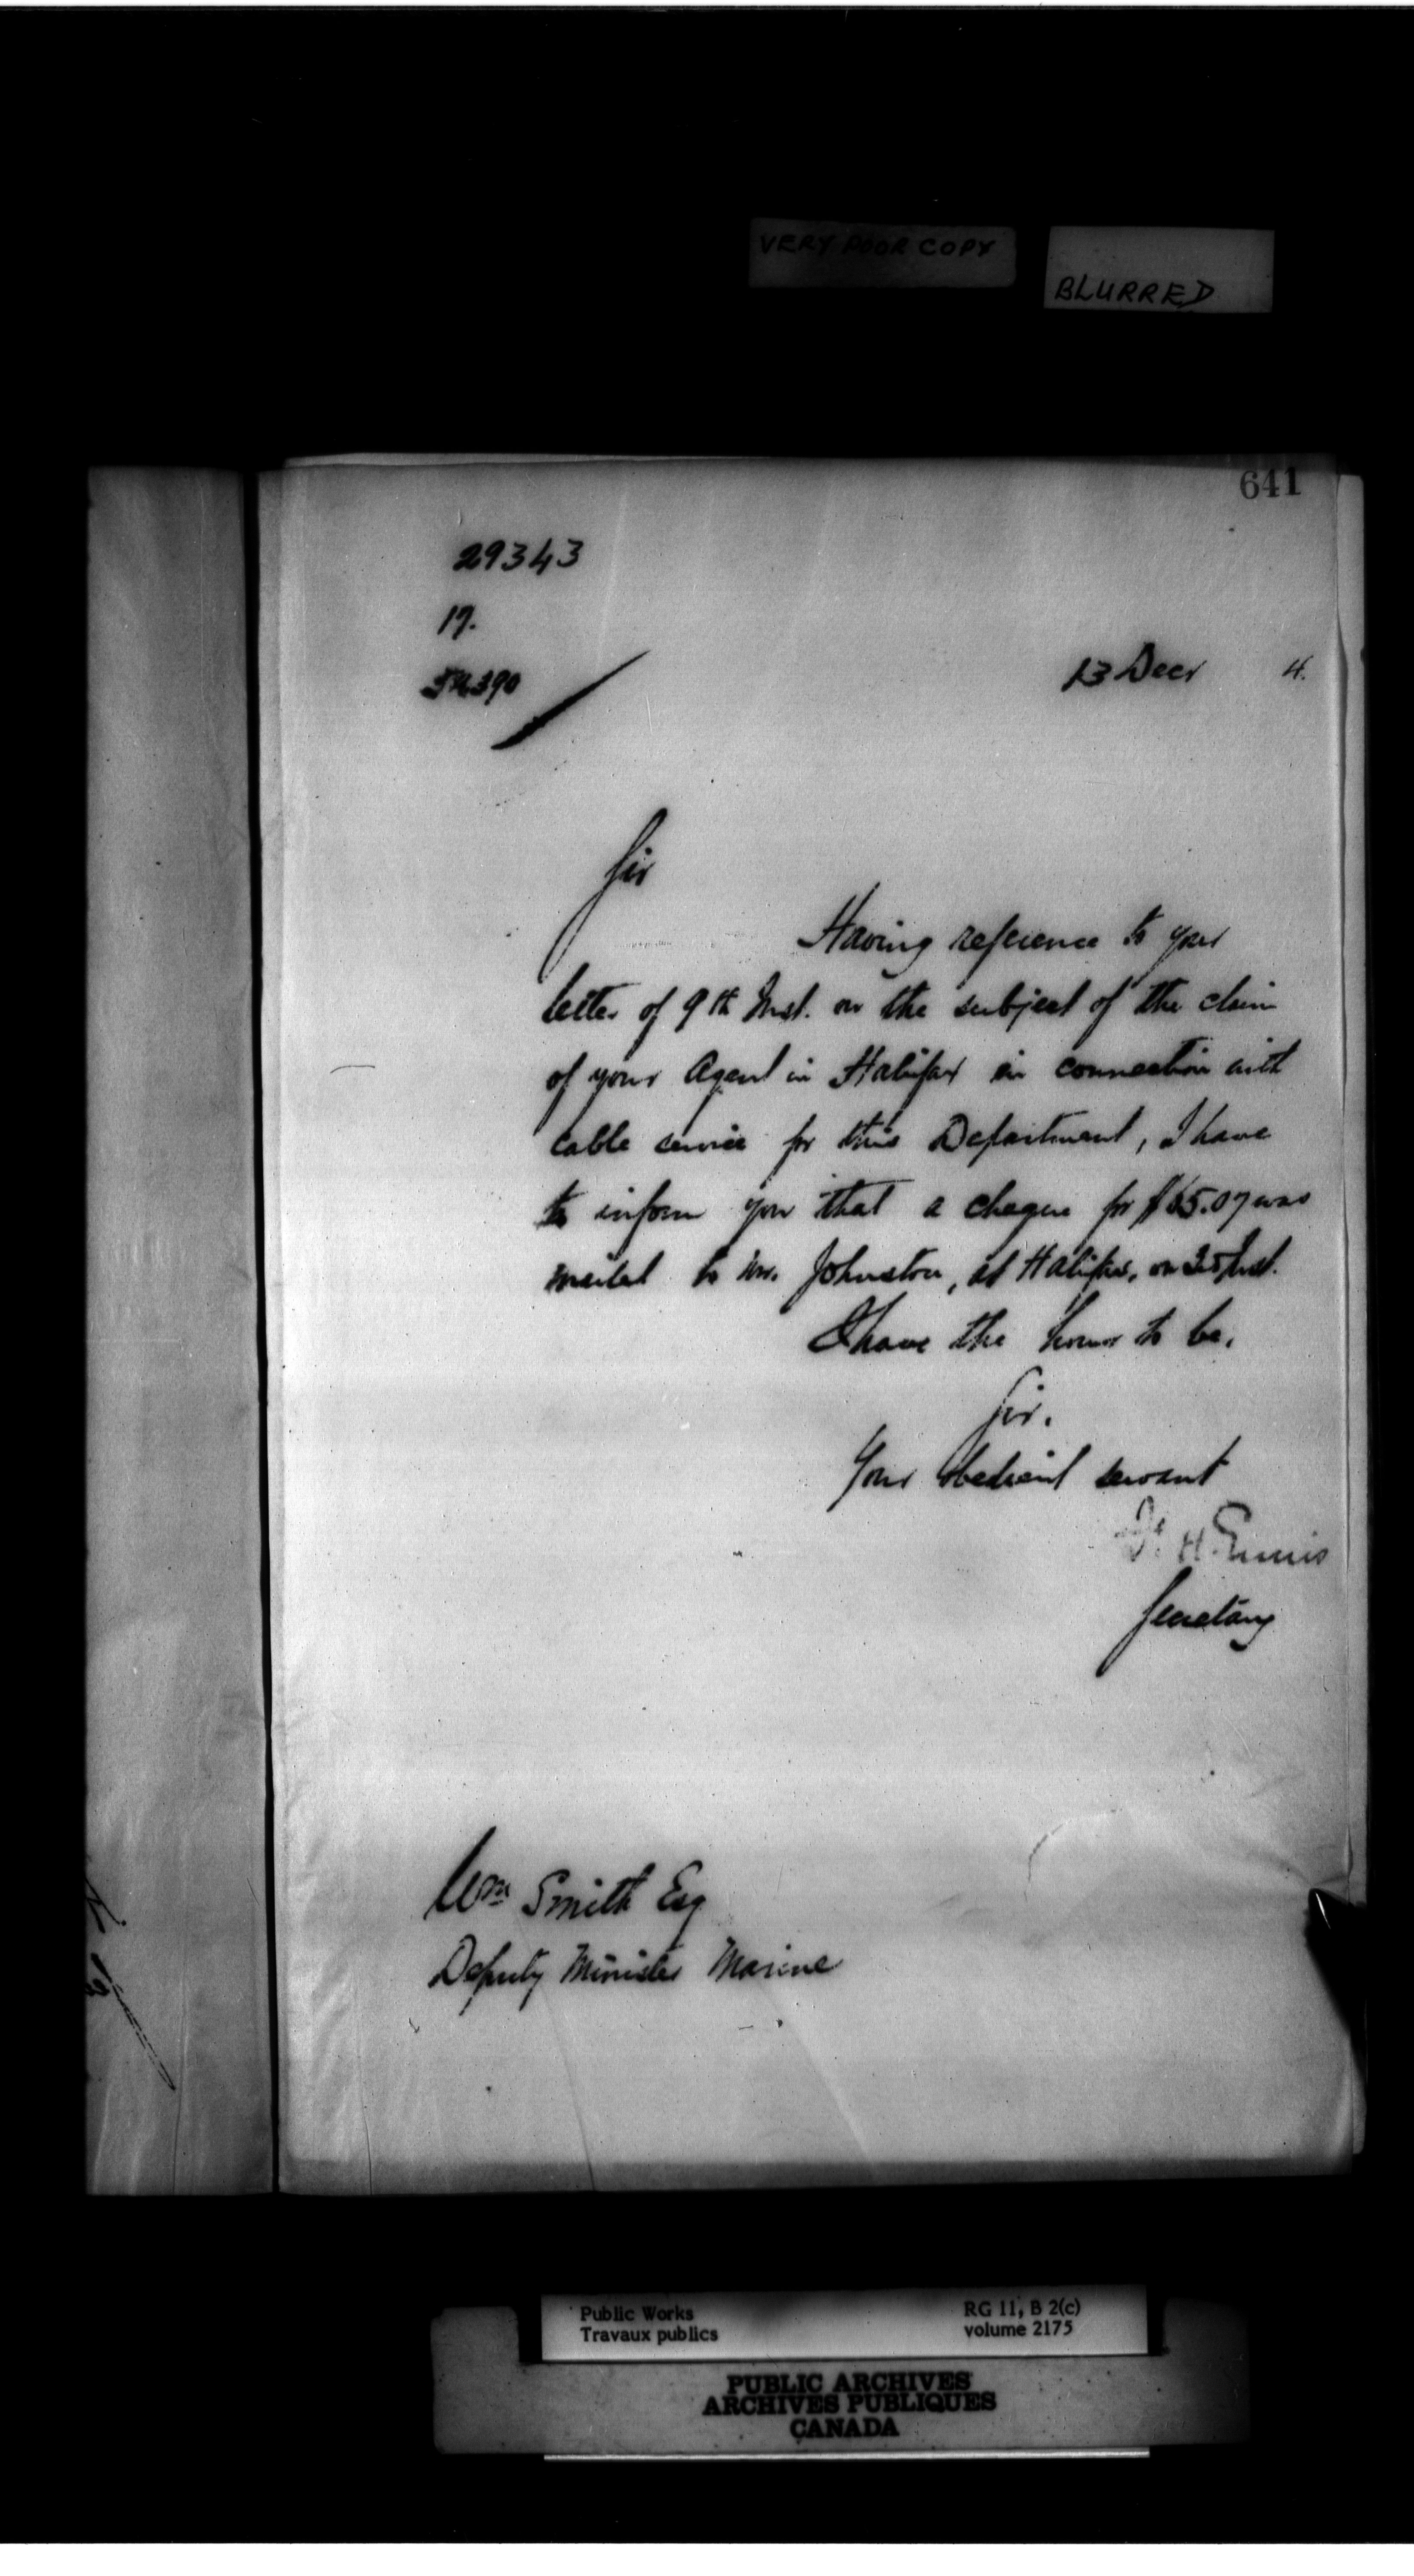 VERY POOR COPY
BLURRED
641
29343
17.
54390
13 Decr 4.
Sir
Having reference to your
letter of 9th Inst. on the subject of the claim
of your Agent in Halifax in connection with
cable service for this Department, I have
to inform you that a cheque for $65.07 was
mailed to Mr. Johnston, at Halifax, on Inst.
I have the honor to be,
Sir.
Your obedient servant
F. H. Ennis
Secretary
Wm Smith Esq
Deputy Minister Marine
Public Works
Travaux publics
RG 11, B 2(c)
volume 2175
PUBLIC ARCHIVES
ARCHIVES PUBLIQUES
CANADA